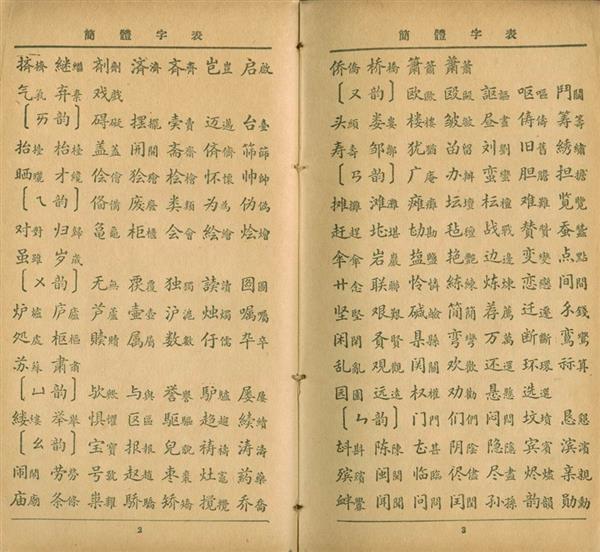 簡體字表
挤擠 継繼 剂劑 済濟 斉齊 岂豈 启啟
气氣 弃棄 戏戲
〔ㄞ韵〕 碍礙 摆擺 卖賣 迈邁 台臺
抬擡 枱檯 盖蓋 開 斋齋 侪儕 筛篩
晒曬 才纔 侩儈 狯獪 桧檜 怀懷 帅帥
〔ㄟ韵〕 备備 废廢 类類 为為 伪偽
对對 归歸 亀龜 柜櫃 会會 絵繪 烩燴
虽雖 岁歲
〔ㄨ韵〕 无無 覆 独獨 読讀 圖
炉爐 庐廬 芦蘆 壶壺 沪滬 嘱囑
処處 枢樞 赎贖 属屬 数數 烛燭 伃儒 卒
苏蘇 肃肅
〔ㄩ韵〕 欤歟 与與 誉譽 驴驢 屡屢
缕縷 举舉 惧懼 区區 驱驅 趋趨 続續
〔ㄠ韵〕 宝寶 报報 皃貌 祷禱 涛濤
闹鬧 劳勞 号號 赵趙 枣棗 灶竈 药藥
庙廟 条條 骄驕 矫矯 搅攪 乔喬
2
簡體字表
侨僑 桥橋 箫簫 萧蕭
〔ㄡ韵〕 欧歐 殴毆 謳 呕嘔 鬥鬭
头頭 娄婁 楼樓 皱皺 昼晝 俦儔 筹籌
寿壽 邹鄒 犹猶 留 刘劉 旧舊 綉繡
〔ㄢ韵〕 广庵 办辦 蛮蠻 胆膽 担擔
摊攤 滩灘 瘫癱 坛壇 枟檀 难難 览覽
赶趕 堪 勘 毡氈 战戰 赞贊 蚕蠶
伞傘 岩巖 盐鹽 艳艷 边邊 变變 点點
廿念 联聯 怜憐 練練 炼煉 恋戀 间間
坚堅 艰艱 碱鹼 简簡 荐薦 迁遷
闲閒 賢 县縣 弯彎 万萬 断斷 鸾鸞
乱亂 观觀 関關 欢歡 还還 环環 祘算
园園 远遠 权權 劝勸 悬懸 选選
〔ㄣ韵〕 门門 们們 问問 坟墳 恳懇
斟 陈陳 甚 阴陰 隐隱 宾賓 滨濱
殡殯 闽閩 临臨 侭儘 尽盡 烬燼 亲親
衅釁 闻聞 問 闰閏 孙孫 韵韻 勋勳
3